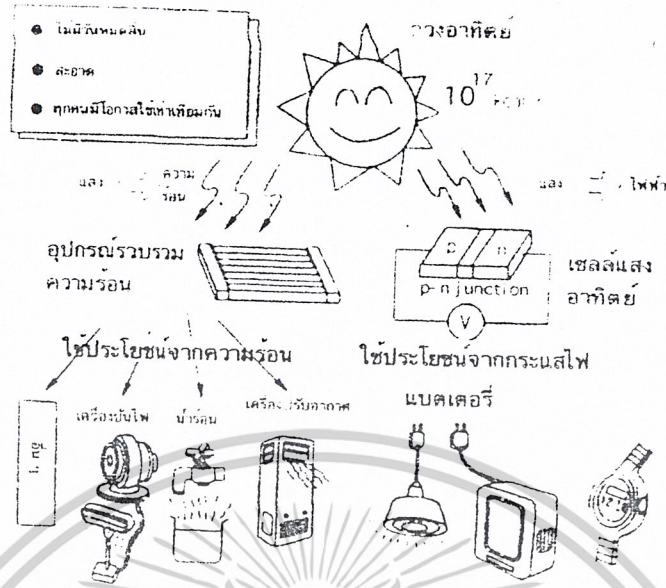 ไม่มีวันหมดสิ้น
สะอาด
ทุกคนมีโอกาสใช้เท่าเทียมกัน
ดวงอาทิตย์
10 17
แสง ความร้อน
แสง ไฟฟ้า
อุปกรณ์รวบรวม
ความร้อน
p n
p-n junction
V
เซลล์แสง
อาทิตย์
ใช้ประโยชน์จากความร้อน
ใช้ประโยชน์จากกระแสไฟ
อื่น ๆ
เครื่องปั่นไฟ
น้ำร้อน
เครื่องปรับอากาศ
แบตเตอรี่